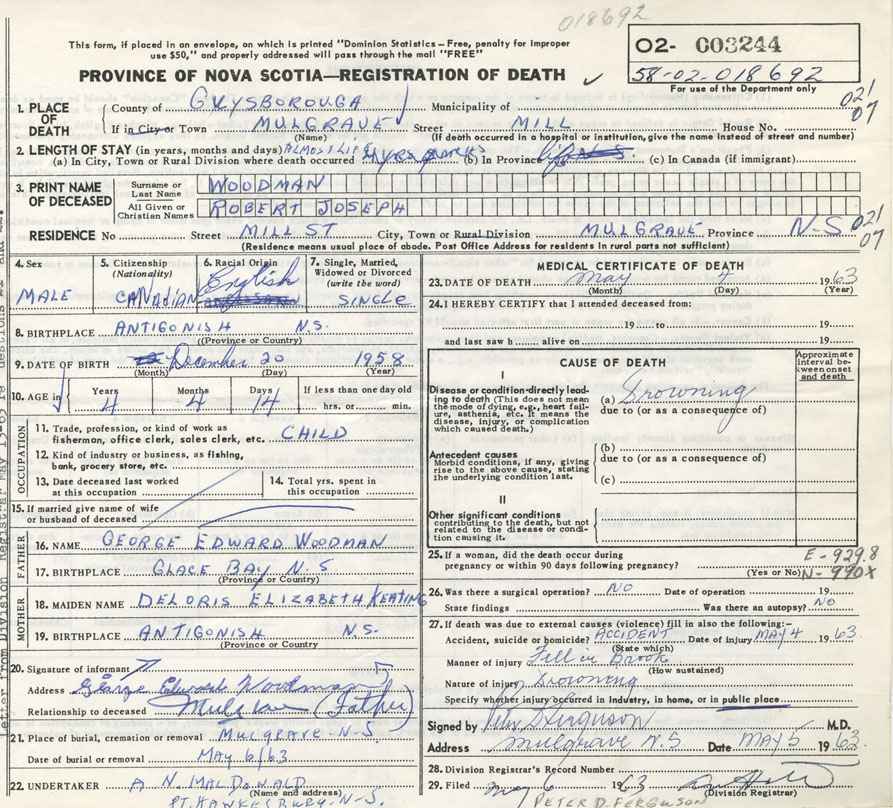 018692
This form, if placed in an envelope, on which is printed "Dominion Statistics – Free, penalty for improper
use $50," and properly addressed will pass through the mail "FREE"
O2- C03244
PROVINCE OF NOVA SCOTIA—REGISTRATION OF DEATH
58-02-018692
For use of the Department only
1. PLACE OF DEATH
County of GUYSBOROUGA Municipality of
021
07
If in City or Town MULGRAVE Street MILL House No.
(Name) (If death occurred in a hospital or institution, give the name instead of street and number)
2. LENGTH OF STAY (in years, months and days) ALMOST LIFE
(a) In City, Town or Rural Division where death occurred 4 yrs (b) In Province life (c) In Canada (if immigrant)
3. PRINT NAME OF DECEASED
Surname or Last Name WOODMAN
All Given or Christian Names ROBERT JOSEPH
RESIDENCE No Street MILL ST City, Town or Rural Division MULGRAVE Province N-S
021
07
(Residence means usual place of abode. Post Office Address for residents in rural parts not sufficient)
4. Sex MALE
5. Citizenship (Nationality) CANADIAN
6. Racial Origin English
7. Single, Married, Widowed or Divorced (write the word) SINGLE
8. BIRTHPLACE ANTIGONISH N.S.
(Province or Country)
9. DATE OF BIRTH December 20 1958
(Month) (Day) (Year)
10. AGE in Years 4 Months 4 Days 14 If less than one day old
hrs. or min.
OCCUPATION
11. Trade, profession, or kind of work as
fisherman, office clerk, sales clerk, etc. CHILD
12. Kind of industry or business, as fishing,
bank, grocery store, etc.
13. Date deceased last worked
at this occupation
14. Total yrs. spent in
this occupation
15. If married give name of wife
or husband of deceased
FATHER
16. NAME GEORGE EDWARD WOODMAN
17. BIRTHPLACE GLACE BAY N.S.
(Province or Country)
MOTHER
18. MAIDEN NAME DELORIS ELIZABETH KEATING
19. BIRTHPLACE ANTIGONISH N.S.
(Province or Country)
20. Signature of informant
Address George Edward Woodman
Relationship to deceased Mulgrave (Father)
21. Place of burial, cremation or removal MULGRAVE N-S
Date of burial or removal MAY 6/63
22. UNDERTAKER A N. MALDONALD
(Name and address)
PT. HAWKESBURY-N-S.
MEDICAL CERTIFICATE OF DEATH
23. DATE OF DEATH May 4 1963
(Month) (Day) (Year)
24. I HEREBY CERTIFY that I attended deceased from:
19 to 19
and last saw h alive on 19
CAUSE OF DEATH
Approximate Interval between onset and death
I
Disease or condition directly leading to death (This does not mean the mode of dying, e.g., heart failure, asthenia, etc. It means the disease, injury, or complication which caused death.)
(a) Drowning
due to (or as a consequence of)
Antecedent causes
Morbid conditions, if any, giving rise to the above cause, stating the underlying condition last.
(b)
due to (or as a consequence of)
(c)
II
Other significant conditions
contributing to the death, but not related to the disease or condition causing it.
25. If a woman, did the death occur during
pregnancy or within 90 days following pregnancy?
(Yes or No)
E-929.8
N-990X
26. Was there a surgical operation? NO Date of operation 19
State findings Was there an autopsy? NO
27. If death was due to external causes (violence) fill in also the following:-
Accident, suicide or homicide? ACCIDENT Date of injury MAY 4 1963
(State which)
Manner of injury Fell in Brook
(How sustained)
Nature of injury Drowning
Specify whether injury occurred in industry, in home, or in public place
Signed by Peter D Ferguson M.D.
Address Mulgrave N.S Date MAY 5 1963
28. Division Registrar's Record Number
29. Filed May 6 1963
(Division Registrar)
PETER D. FERGUSON